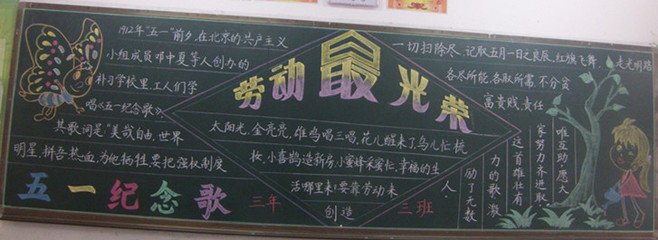 1912年"五一"前夕,在北京的共产主义
小组成员邓中夏等人创办的
补习学校里,工人们学
唱《五一纪念歌》。
其歌词是"美哉自由,世界
明星,拼吾热血,为他牺牲,要把强权制度
一切扫除尽,记取五月一日之良辰,红旗飞舞,走光明路
各尽所能,各取所需,不分贫
富贵贱,责任
唯互助愿大
家努力齐进取
这首雄壮有
力的歌,激
励了无数
人.
劳动最光荣
太阳光,金亮亮,雄鸡唱三唱,花儿醒来了,鸟儿忙梳
妆,小喜鹊造新房,小蜜蜂采蜜忙,幸福的生
活哪里来?要靠劳动来
创造
五一纪念歌
三年 三班